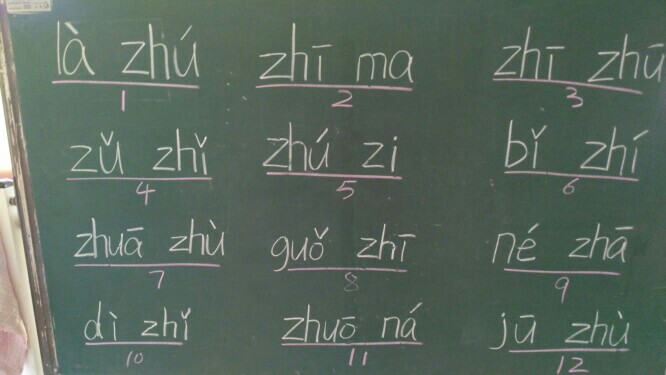 là zhú zhī ma zhī zhū
1 2 3
zǔ zhǐ zhú zi bǐ zhí
4 5 6
zhuā zhù guǒ zhī né zhā
7 8 9
dì zhǐ zhuō ná jū zhù
10 11 12